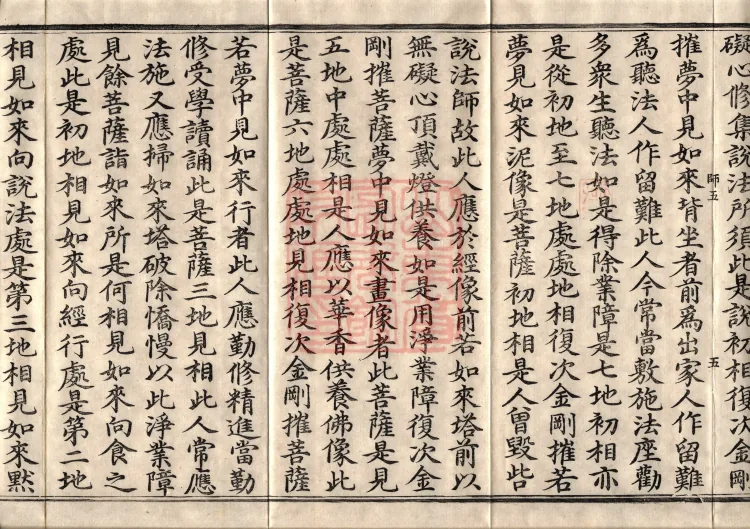 礙心修集說法所須此是說初相復次金剛
摧夢中見如來背坐者前爲出家人作留難
爲聽法人作留難此人今常當敷施法座勸
多衆生聽法如是得除業障是七地初相亦
是從初地至七地處處地相復次金剛摧若
夢見如來泥像是菩薩初地相是人曾毀呰
說法師故此人應於經像前若如來塔前以
無礙心頂戴燈供養如是用淨業障復次金
剛摧菩薩夢中見如來畫像者此菩薩是見
五地中處處相是人應以華香供養佛像此
是菩薩六地處處地見相復次金剛摧菩薩
若夢中見如來行者此人應勤修精進當勤
修受學讀誦此是菩薩三地見相此人常應
法施又應掃如來塔破除憍慢以此淨業障
見餘菩薩詣如來所是何相見如來向食之
處此是初地相見如來向經行處是第二地
相見如來向說法處是第三地相見如來默
師五
五